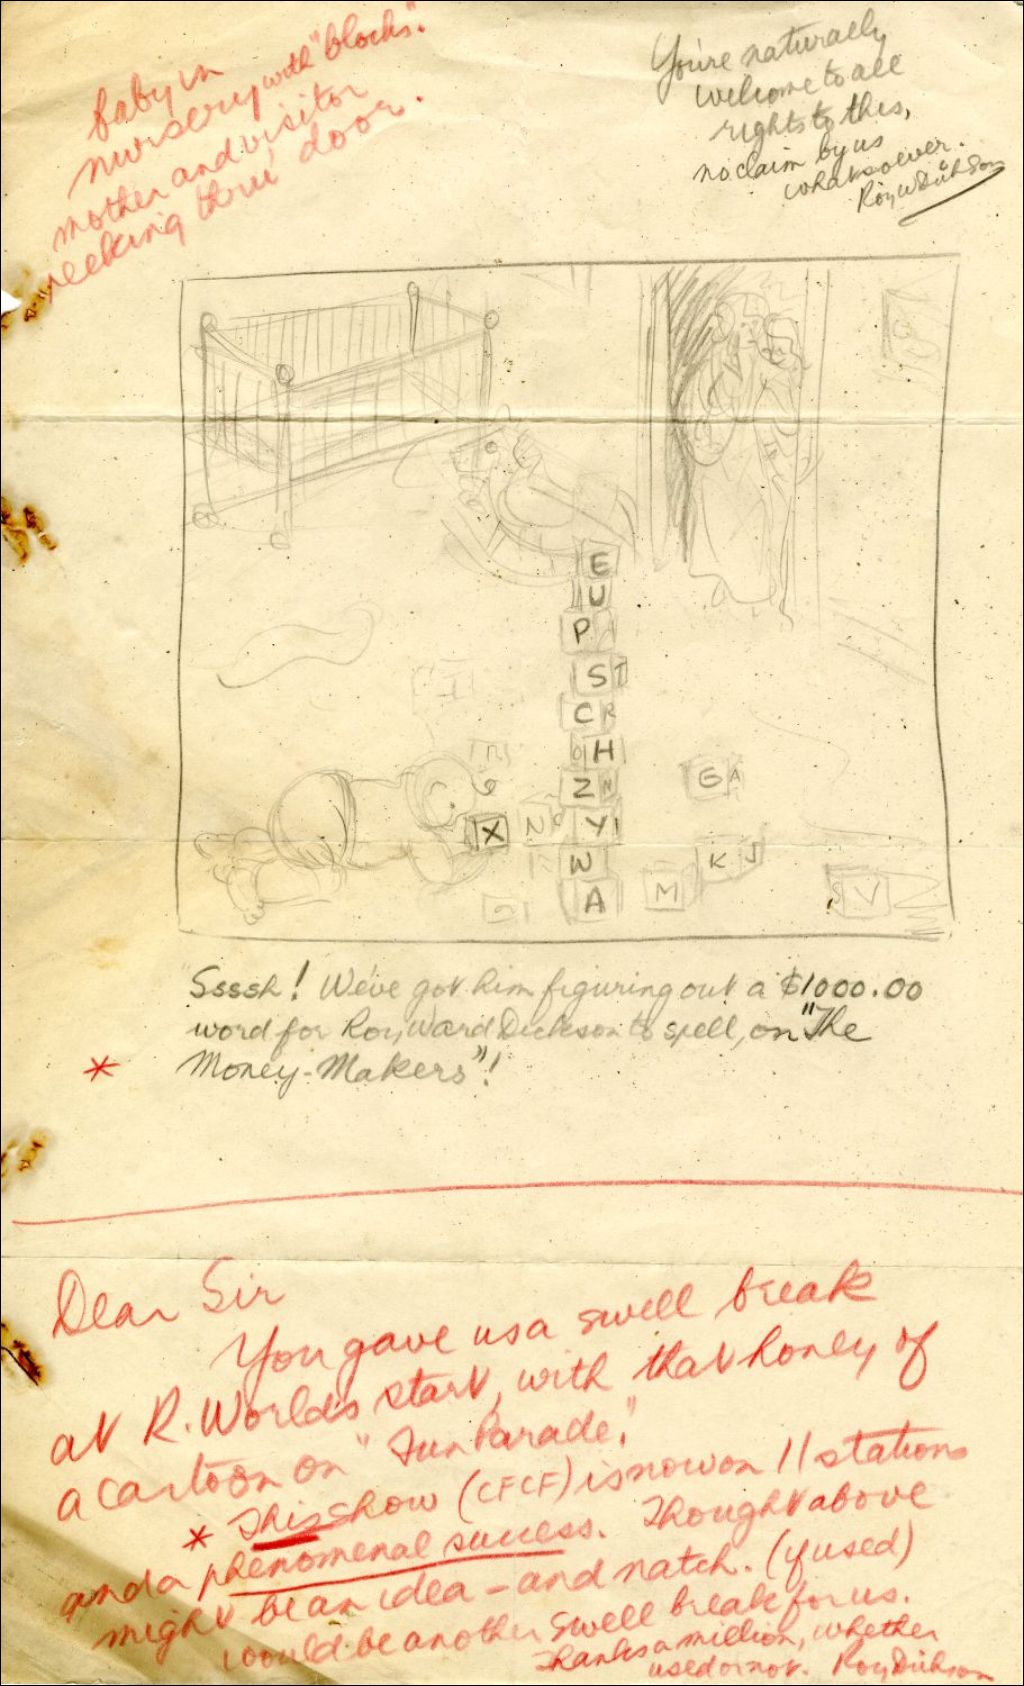 baby in
nursery with "blocks".
mother and visitor
peeking thru' door.
You're naturally
welcome to all
rights to this,
no claim by us
whatsoever.
Roy W Dickson
E
U
P
S T
C R
O H
Z N
Y
W
A
X
N
G A
K J
M
S V
Ssssh! We've got him figuring out a $1000.00
word for Roy Ward Dickson to spell, on "The
* Money-Makers"!
Dear Sir
You gave us a swell break
at R. World's start, with that honey of
a cartoon on "Fun Parade".
* This show (CFCF) is now on 11 stations
and a phenomenal success. Thought above
might be an idea - and natch. (if used)
would be another swell break for us.
Thanks a million, whether
used or not. Roy Dickson